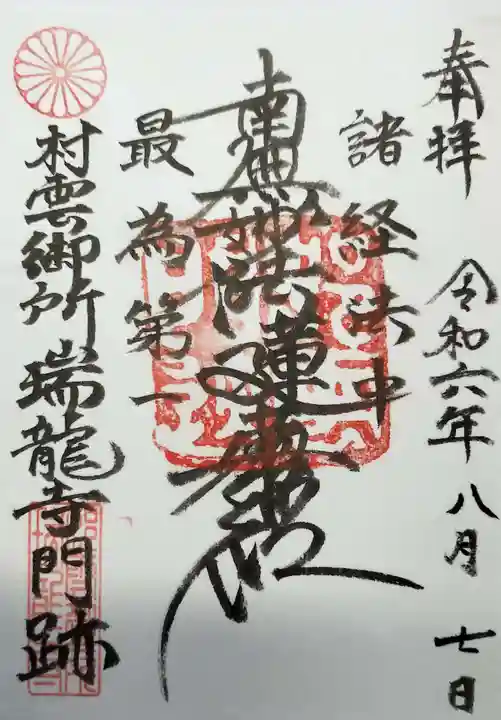 奉拝 令和六年八月七日
諸経法中
南無妙法蓮華経
最為第一
村雲御所瑞龍寺門跡